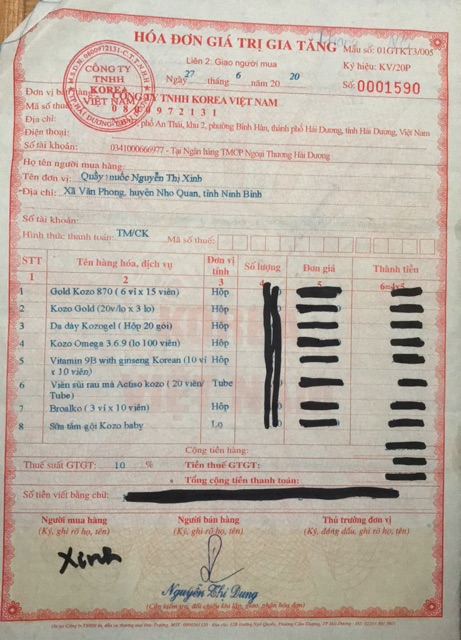 HÓA ĐƠN GIÁ TRỊ GIA TĂNG
Mẫu số: 01GTKT3/005
Liên 2: Giao người mua
Ký hiệu: KV/20P
Ngày 27 tháng 6 năm 2020
Số: 0001590
M.S.D.N: 0800972131-C.T.T.N.H.H
CÔNG TY
TNHH
KOREA
VIỆT NAM
Đơn vị bán hàng: CÔNG TY TNHH KOREA VIỆT NAM
Mã số thuế: 0800972131
Địa chỉ: phố An Thái, khu 2, phường Bình Hàn, thành phố Hải Dương, tỉnh Hải Dương, Việt Nam
Điện thoại:
Số tài khoản: 0341000666977 - Tại Ngân hàng TMCP Ngoại Thương Hải Dương
Họ tên người mua hàng:
Tên đơn vị: Quầy thuốc Nguyễn Thị Xinh
Địa chỉ: Xã Văn Phong, huyện Nho Quan, tỉnh Ninh Bình
Số tài khoản:
Hình thức thanh toán: TM/CK Mã số thuế:
STT Tên hàng hóa, dịch vụ Đơn vị tính Số lượng Đơn giá Thành tiền
1 2 3 4 5 6=4x5
1 Gold Kozo 870 ( 6 vỉ x 15 viên) Hộp
2 Kozo Gold (20v/lo x 3 lo) Hộp
3 Da dày Kozogel ( Hộp 20 gói) Hộp
4 Kozo Omega 3.6.9 (lo 100 viên) Hộp
5 Vitamin 9B with ginseng Korean (10 vỉ x 10 viên) Hộp
6 Viên sủi rau má Actiso kozo ( 20 viên/ Tube) Tube
7 Broalko ( 3 vỉ x 10 viên) Hộp
8 Sữa tắm gội Kozo baby Lọ
Cộng tiền hàng:
Thuế suất GTGT: 10 % Tiền thuế GTGT:
Tổng cộng tiền thanh toán:
Số tiền viết bằng chữ:
Người mua hàng Người bán hàng Thủ trưởng đơn vị
(Ký, ghi rõ họ, tên) (Ký, ghi rõ họ, tên) (Ký, đóng dấu, ghi rõ họ, tên)
Xinh
Nguyễn Thị Dung
(Cần kiểm tra, đối chiếu khi lập, giao, nhận hóa đơn)